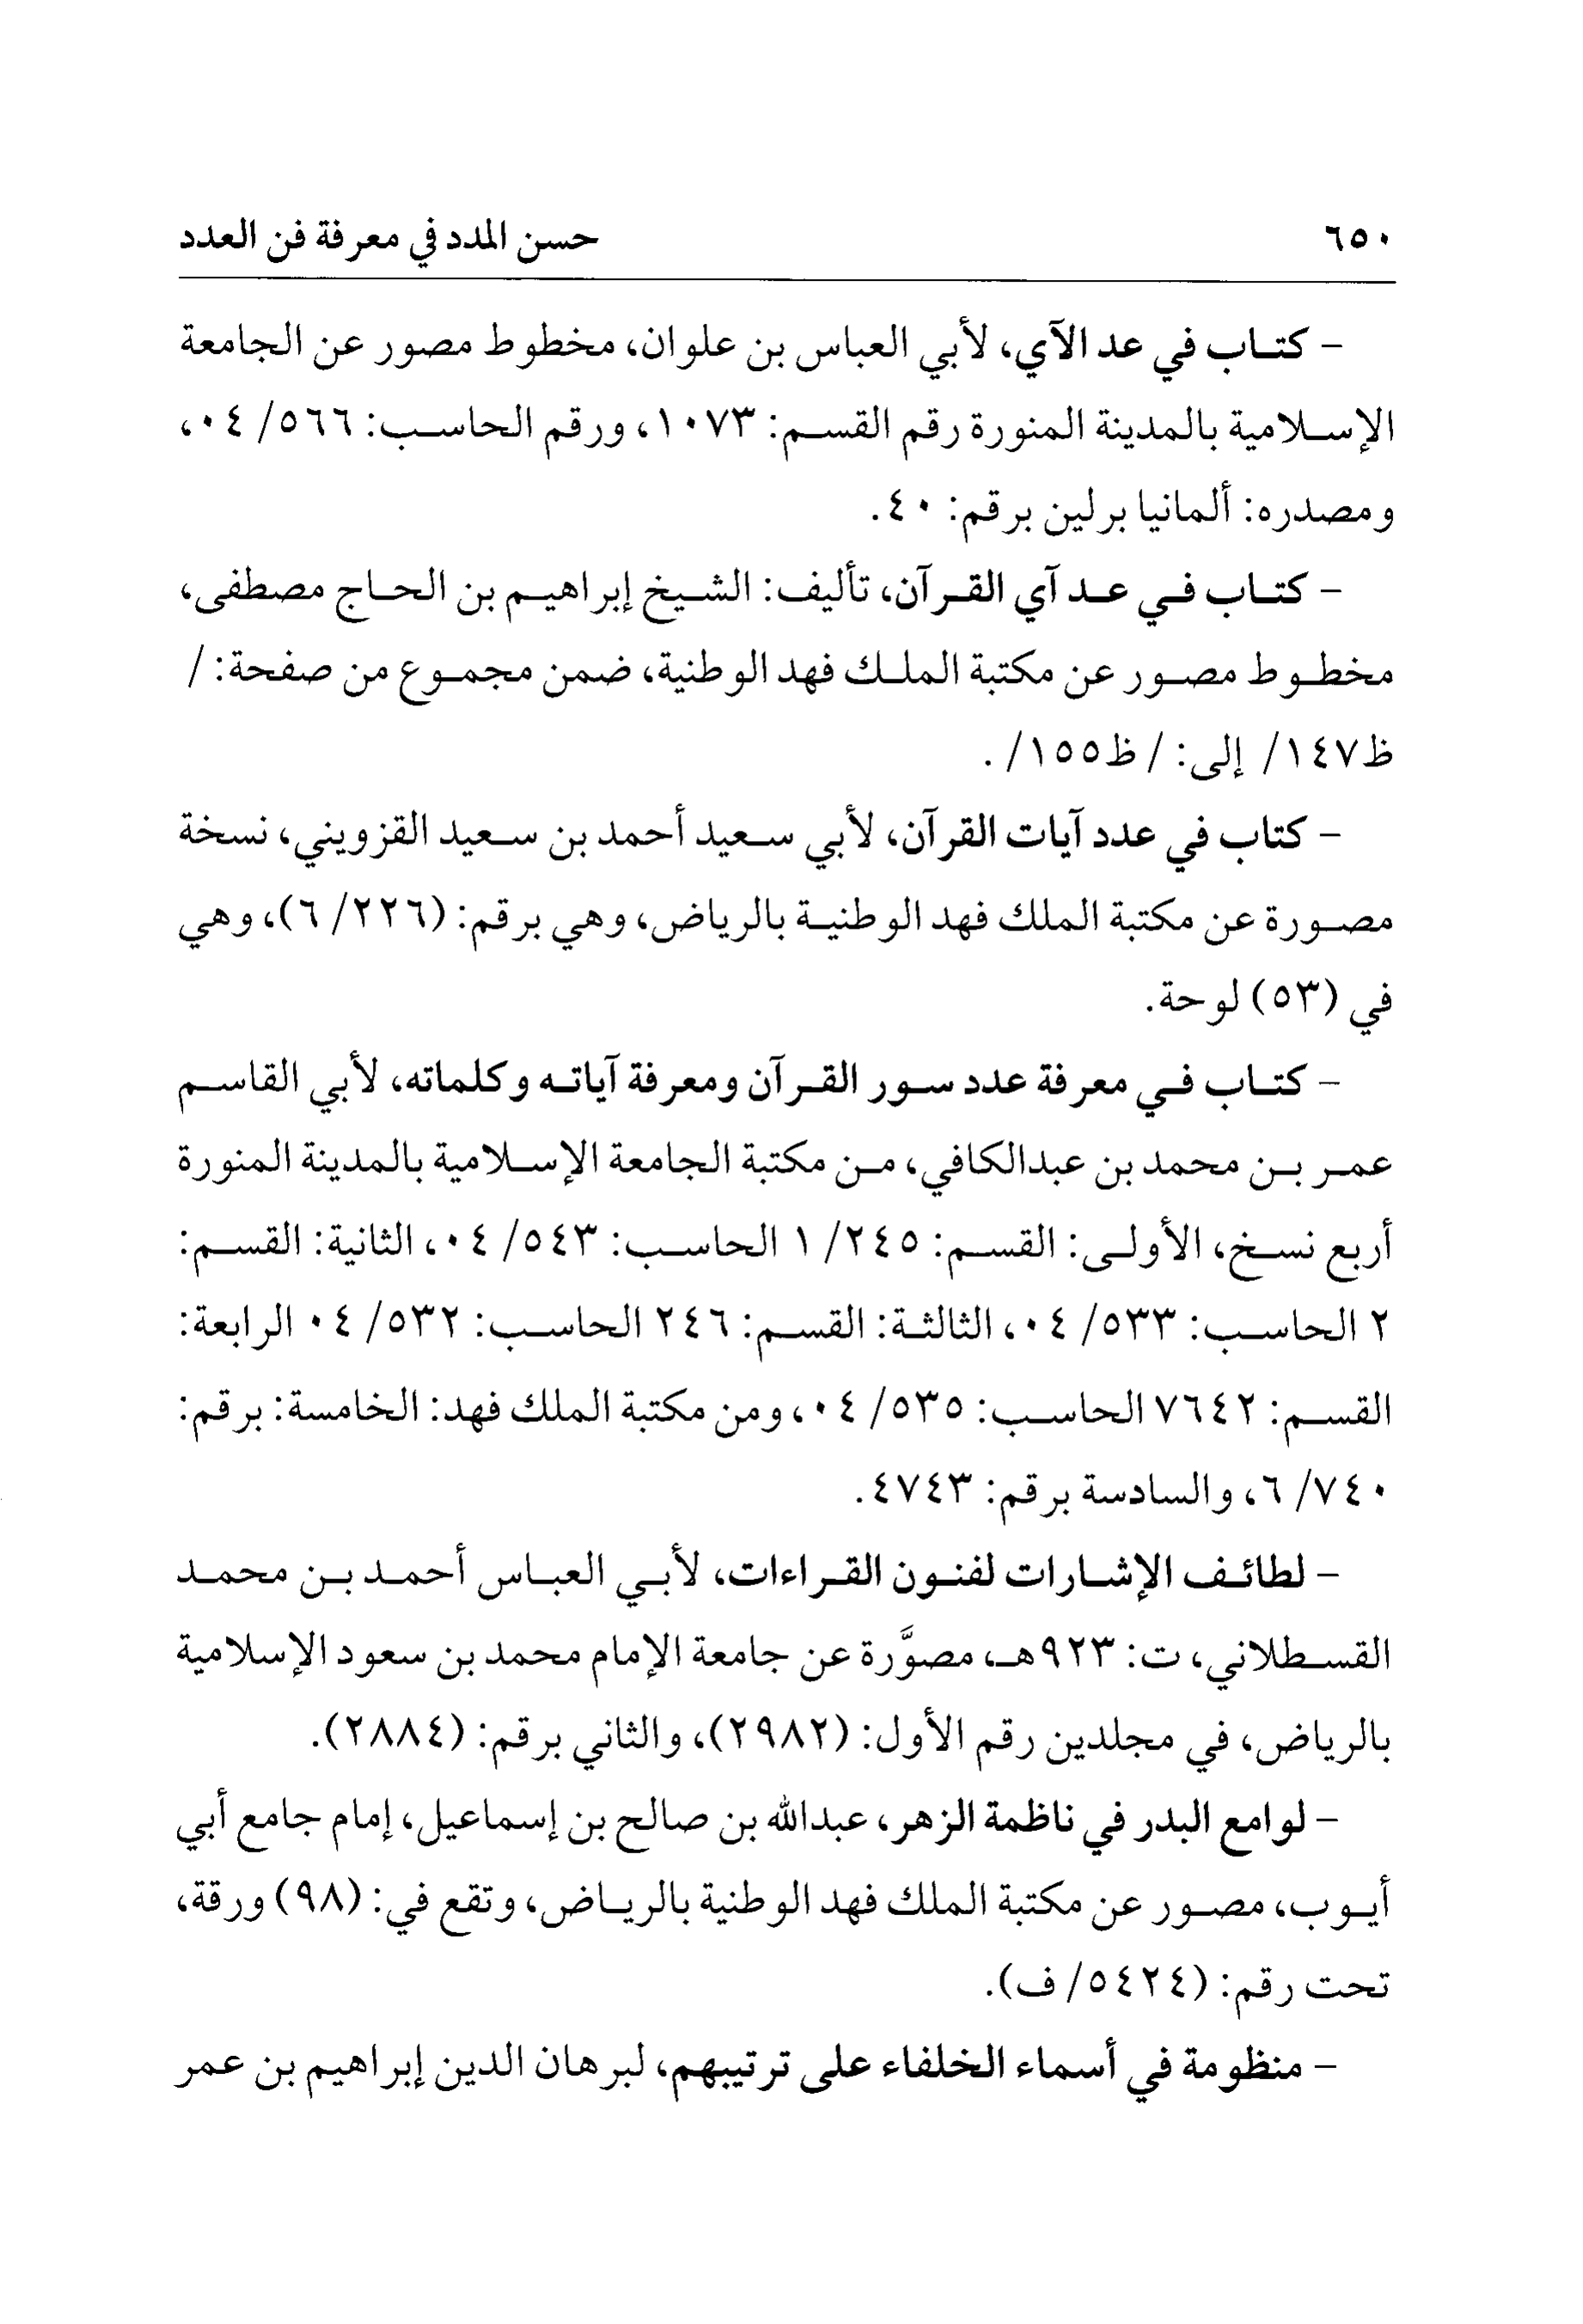 ٦٥٠ حسن المدد في معرفة فن العدد
– كتاب في عد الآي، لأبي العباس بن علوان، مخطوط مصور عن الجامعة
الإسلامية بالمدينة المنورة رقم القسم: ١٠٧٣، ورقم الحاسب: ٥٦٦/ ٠٤،
ومصدره: ألمانيا برلين برقم: ٤٠.
– كتاب في عد آي القرآن، تأليف: الشيخ إبراهيم بن الحاج مصطفى،
مخطوط مصور عن مكتبة الملك فهد الوطنية، ضمن مجموع من صفحة: /
ظ١٤٧/ إلى: / ظ١٥٥/ .
– كتاب في عدد آيات القرآن، لأبي سعيد أحمد بن سعيد القزويني، نسخة
مصورة عن مكتبة الملك فهد الوطنية بالرياض، وهي برقم: (٢٢٦/ ٦)، وهي
في (٥٣) لوحة.
– كتاب في معرفة عدد سور القرآن ومعرفة آياته وكلماته، لأبي القاسم
عمر بن محمد بن عبدالكافي، من مكتبة الجامعة الإسلامية بالمدينة المنورة
أربع نسخ، الأولى: القسم: ٢٤٥/ ١ الحاسب: ٥٤٣/ ٠٤، الثانية: القسم:
٢ الحاسب: ٥٣٣/ ٠٤، الثالثة: القسم: ٢٤٦ الحاسب: ٥٣٢/ ٠٤ الرابعة:
القسم: ٧٦٤٢ الحاسب: ٥٣٥/ ٠٤، ومن مكتبة الملك فهد: الخامسة: برقم:
٧٤٠/ ٦، والسادسة برقم: ٤٧٤٣.
– لطائف الإشارات لفنون القراءات، لأبي العباس أحمد بن محمد
القسطلاني، ت: ٩٢٣هـ، مصوَّرة عن جامعة الإمام محمد بن سعود الإسلامية
بالرياض، في مجلدين رقم الأول: (٢٩٨٢)، والثاني برقم: (٢٨٨٤).
– لوامع البدر في ناظمة الزهر، عبدالله بن صالح بن إسماعيل، إمام جامع أبي
أيوب، مصور عن مكتبة الملك فهد الوطنية بالرياض، وتقع في: (٩٨) ورقة،
تحت رقم: (٥٤٢٤/ ف).
– منظومة في أسماء الخلفاء على ترتيبهم، لبرهان الدين إبراهيم بن عمر